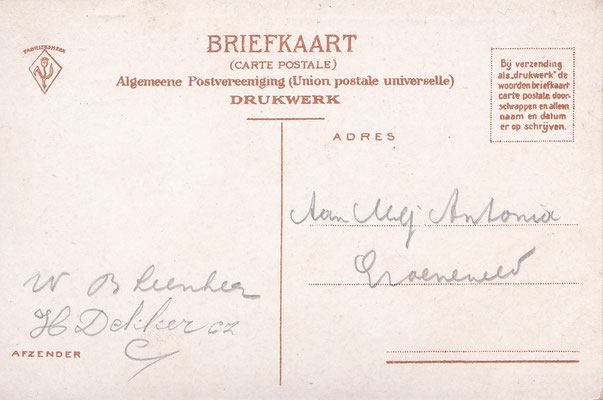 FABRIEKSMERK
BRIEFKAART
(CARTE POSTALE)
Algemeene Postvereeniging (Union postale universelle)
DRUKWERK
Bij verzending
als „drukwerk" de
woorden briefkaart
carte postale door-
schrappen en alleen
naam en datum
er op schrijven.
ADRES
Aan Mej Antonia
Groeneveld
W B Leenheer
H Dekker cz
AFZENDER